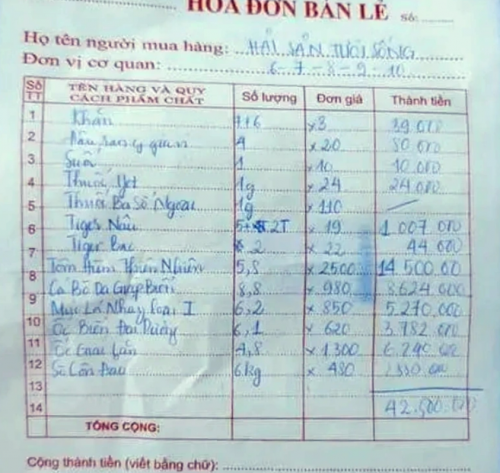 HÓA ĐƠN BÁN LẺ Số:
Họ tên người mua hàng: HẢI SẢN TƯƠI SỐNG
Đơn vị cơ quan: 6-7-8-9-10
Số TT TÊN HÀNG VÀ QUY CÁCH PHẨM CHẤT Số lượng Đơn giá Thành tiền
1 Khăn 7+6 x3 39 000
2 4 x20 80 000
3 Suối 1 x10 10 000
4 Thuốc Jet 1g x24 24 000
5 Thuốc Ba Số Ngoại 1g x110
6 Tiger Nâu 2T x19 1 007 000
7 Tiger Bạc 2 x22 44 000
8 Tôm Hùm Thiên Nhiên 5,8 x2500 14 500 000
9 Cá Bò Da Giáp Biển 8,8 x980 8 624 000
10 Mực Lá Nháy Loại I 6,2 x850 5 270 000
11 Ốc Biển Đại Dương 6,1 x620 3 782 000
12 Ốc Gai Lớn 4,8 x1300 6 240 000
13 Sò 6kg x480
14 42 500 000
TỔNG CỘNG:
Cộng thành tiền (viết bằng chữ):